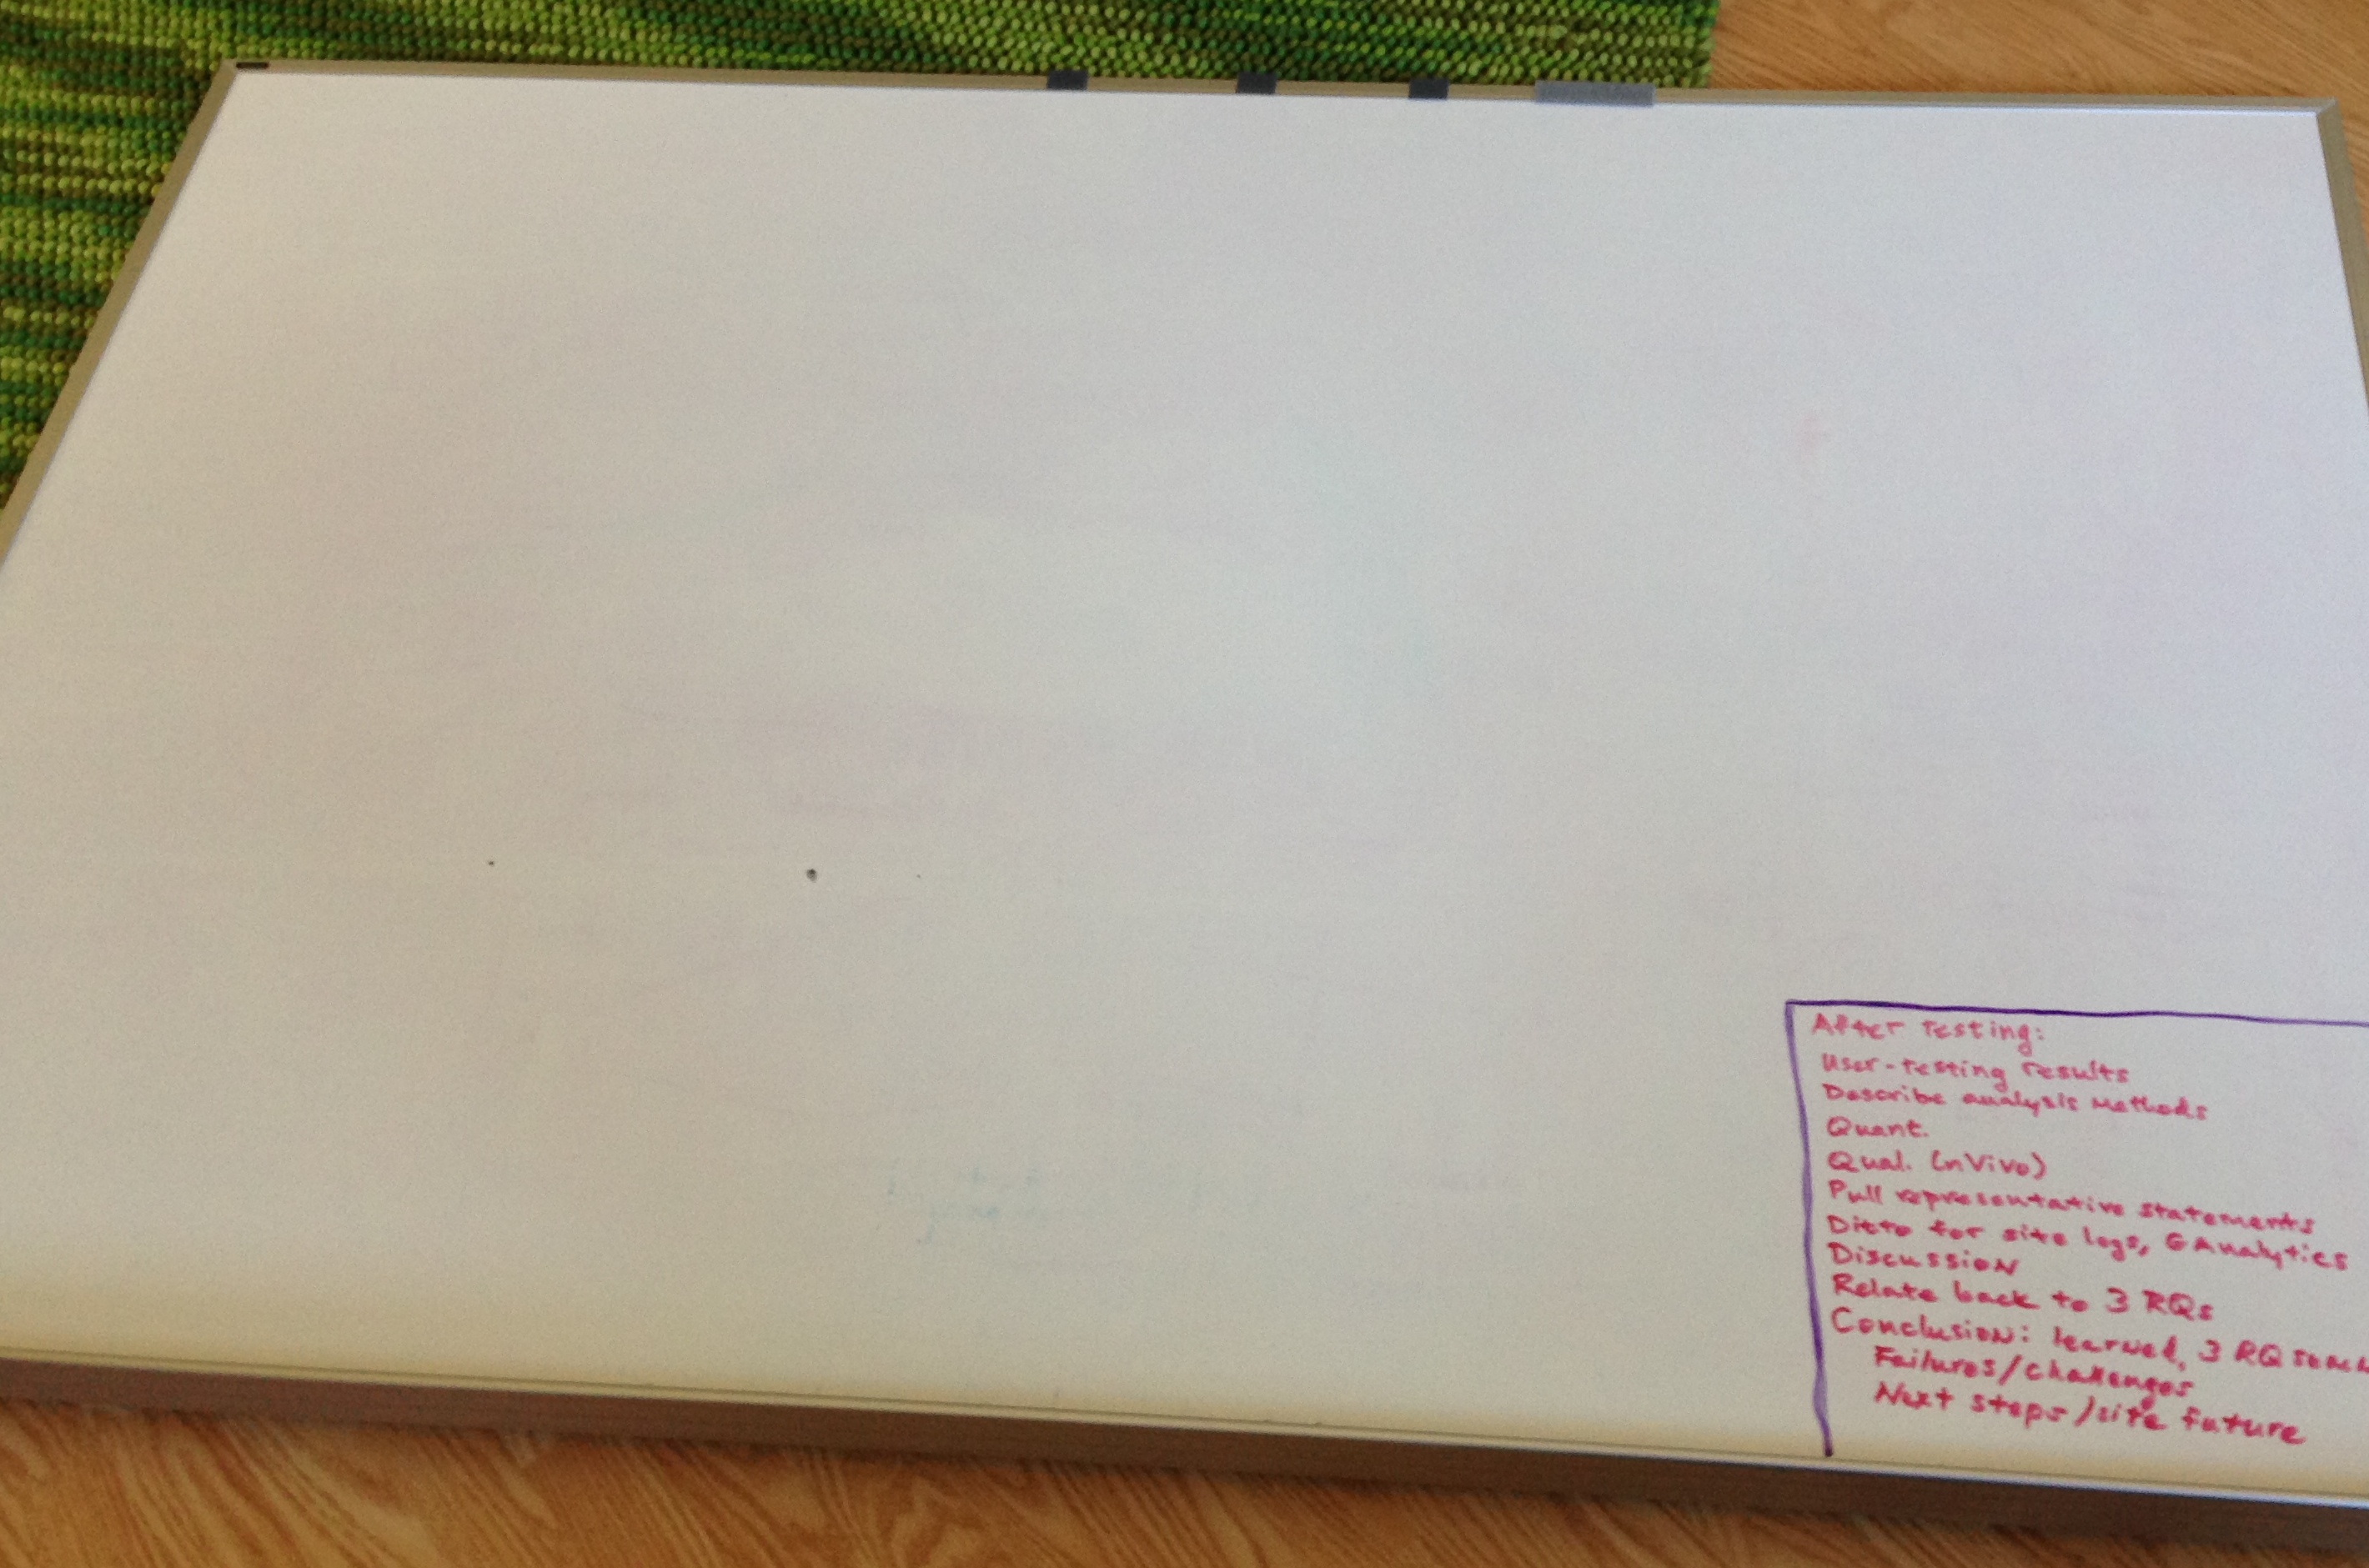 After Testing:
User-testing results
Describe analysis methods
Quant.
Qual. (nVivo)
Pull representative statements
Ditto for site logs, GAnalytics
Discussion
Relate back to 3 RQs
Conclusion: learned, 3 RQ
Failures/challenges
Next steps/site future